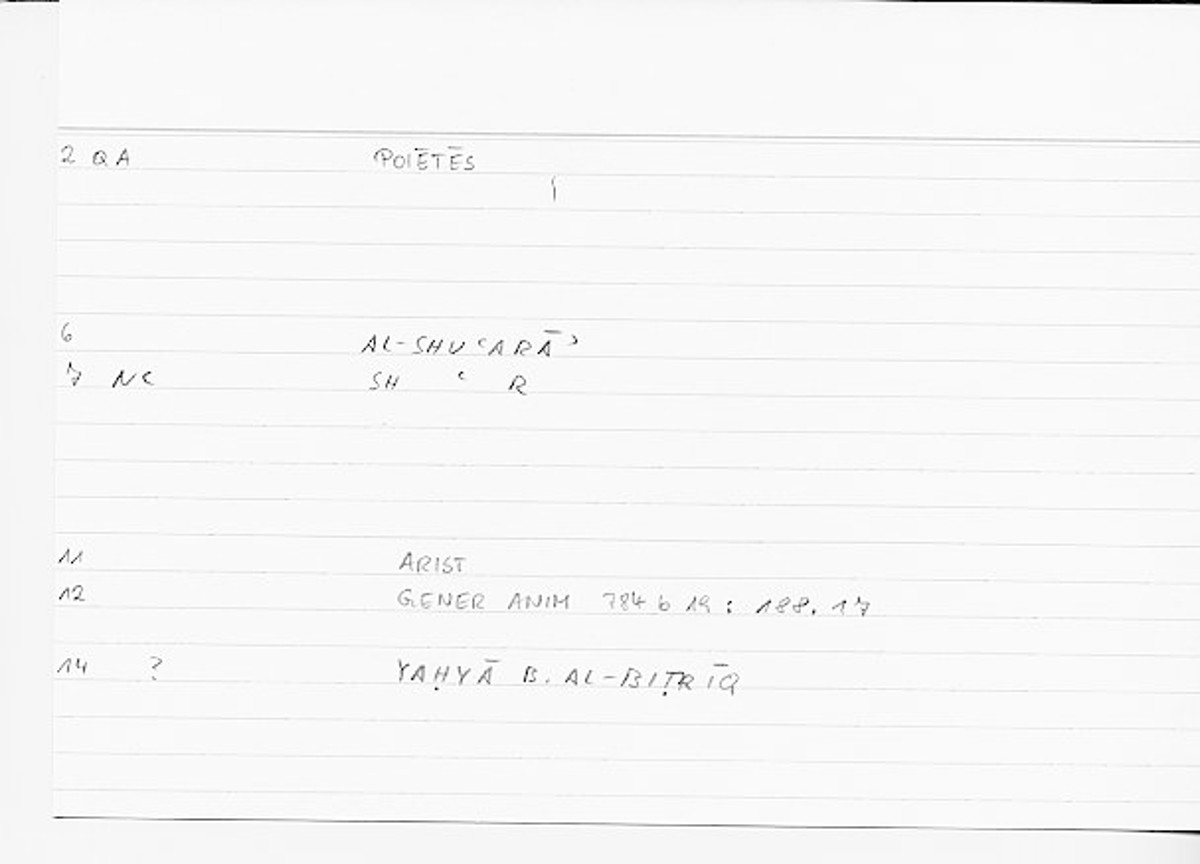 2 QA POIĒTĒS
6 AL-SHUʿARĀʾ
7 NC SH ʿ R
11 ARIST
12 GENER ANIM 784 b 19 : 188. 17
14 ? YAḤYĀ B. AL-BIṬRĪQ